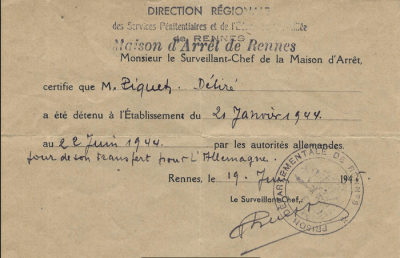 DIRECTION RÉGIONALE
des Services Pénitentiaires et de l'É
de RENNES
Maison d'Arrêt de Rennes
Monsieur le Surveillant-Chef de la Maison d'Arrêt,
certifie que M. Piquet Désiré
a été détenu à l'Établissement du 21 Janvier 1944
au 22 Juin 1944 par les autorités allemandes.
jour de son transfert pour l'Allemagne.
Rennes, le 19 194
Le Surveillant-Chef,
PRISON DÉPARTEMENTALE DE RENNES